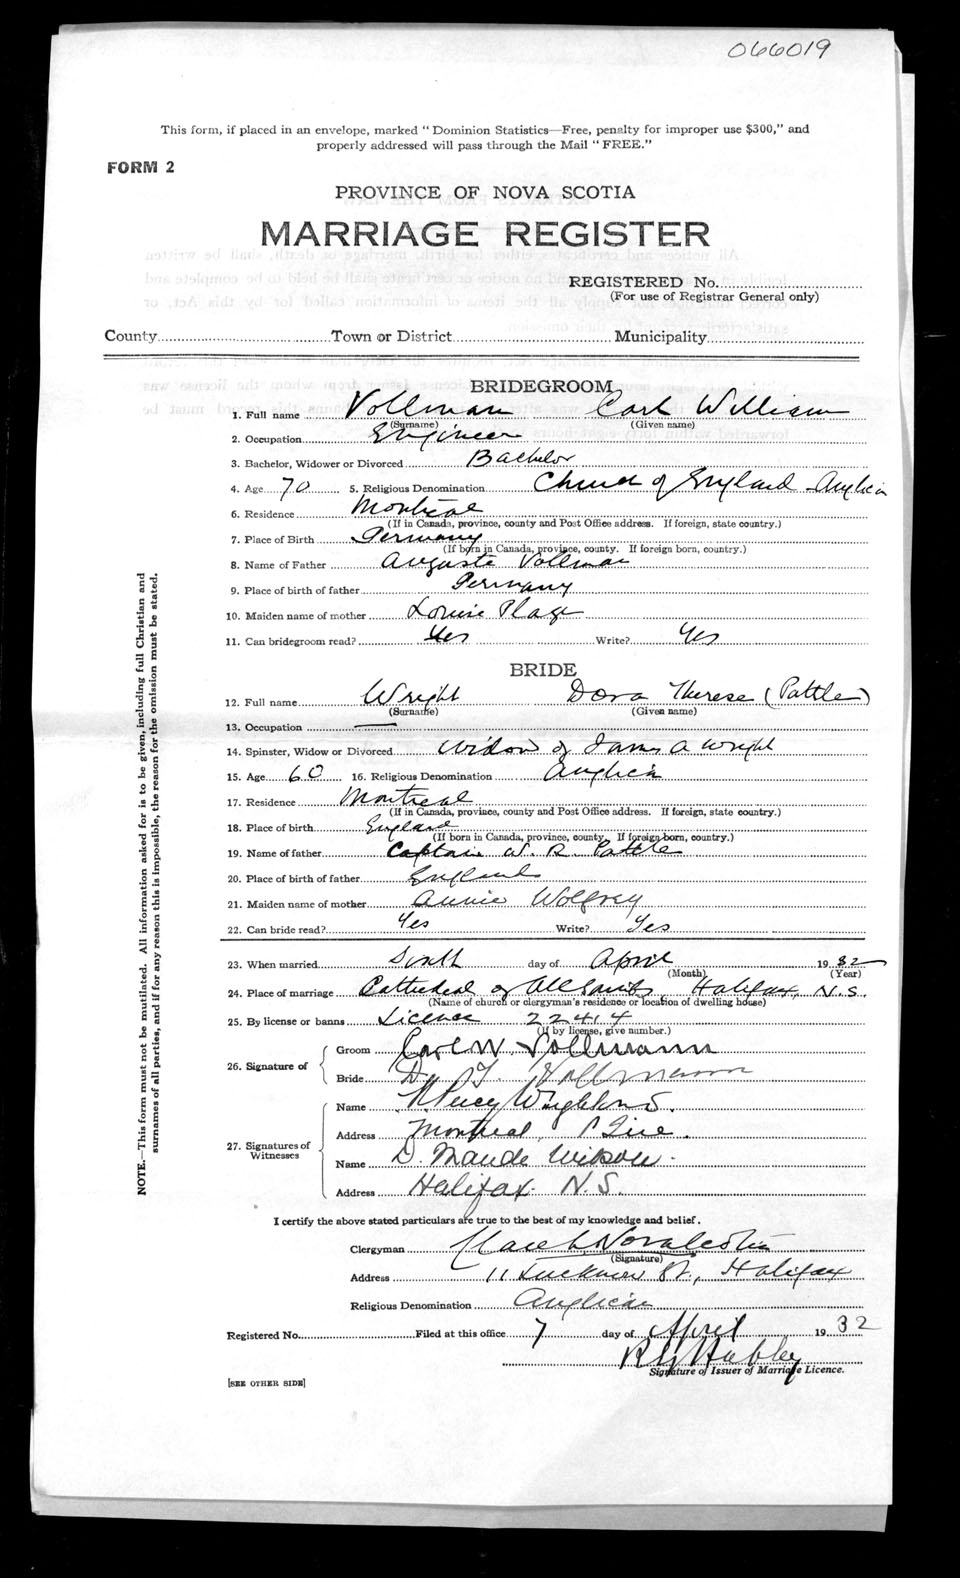 066019
This form, if placed in an envelope, marked "Dominion Statistics—Free, penalty for improper use $300," and
properly addressed will pass through the Mail "FREE."
FORM 2
PROVINCE OF NOVA SCOTIA
MARRIAGE REGISTER
REGISTERED No.
(For use of Registrar General only)
County Town or District Municipality
BRIDEGROOM
1. Full name Vollman Carl William
(Surname) (Given name)
2. Occupation Engineer
3. Bachelor, Widower or Divorced Bachelor
4. Age 70 5. Religious Denomination Church of England Anglican
6. Residence Montreal
(If in Canada, province, county and Post Office address. If foreign, state country.)
7. Place of Birth Germany
(If born in Canada, province, county. If foreign born, country.)
8. Name of Father Auguste Vollman
9. Place of birth of father Germany
10. Maiden name of mother Louise Plage
11. Can bridegroom read? Yes Write? Yes
BRIDE
12. Full name Wright Dora Therese (Pattle)
(Surname) (Given name)
13. Occupation —
14. Spinster, Widow or Divorced Widow of James A Wright
15. Age 60 16. Religious Denomination Anglican
17. Residence Montreal
(If in Canada, province, county and Post Office address. If foreign, state country.)
18. Place of birth England
(If born in Canada, province, county. If foreign born, country.)
19. Name of father Captain W. R. Pattle
20. Place of birth of father England
21. Maiden name of mother Annie Wolfrey
22. Can bride read? Yes Write? Yes
23. When married Sixth day of April 1932
(Month) (Year)
24. Place of marriage Cathedral of All Saints, Halifax, N.S.
(Name of church or clergyman's residence or location of dwelling house)
25. By license or banns Licence 22414
(If by license, give number.)
26. Signature of Groom Carl W. Vollmann
Bride D. T. Vollmann
27. Signatures of Witnesses Name Percy
Address Montreal, P Que.
Name D. Maude Wilson.
Address Halifax. N.S.
I certify the above stated particulars are true to the best of my knowledge and belief.
Clergyman
(Signature)
Address 11 St., Halifax
Religious Denomination Anglican
Registered No. Filed at this office 7 day of April 1932
Hubley
Signature of Issuer of Marriage Licence.
[SEE OTHER SIDE]
NOTE.—This form must not be mutilated. All information asked for is to be given, including full Christian and
surnames of all parties, and if for any reason this is impossible, the reason for the omission must be stated.